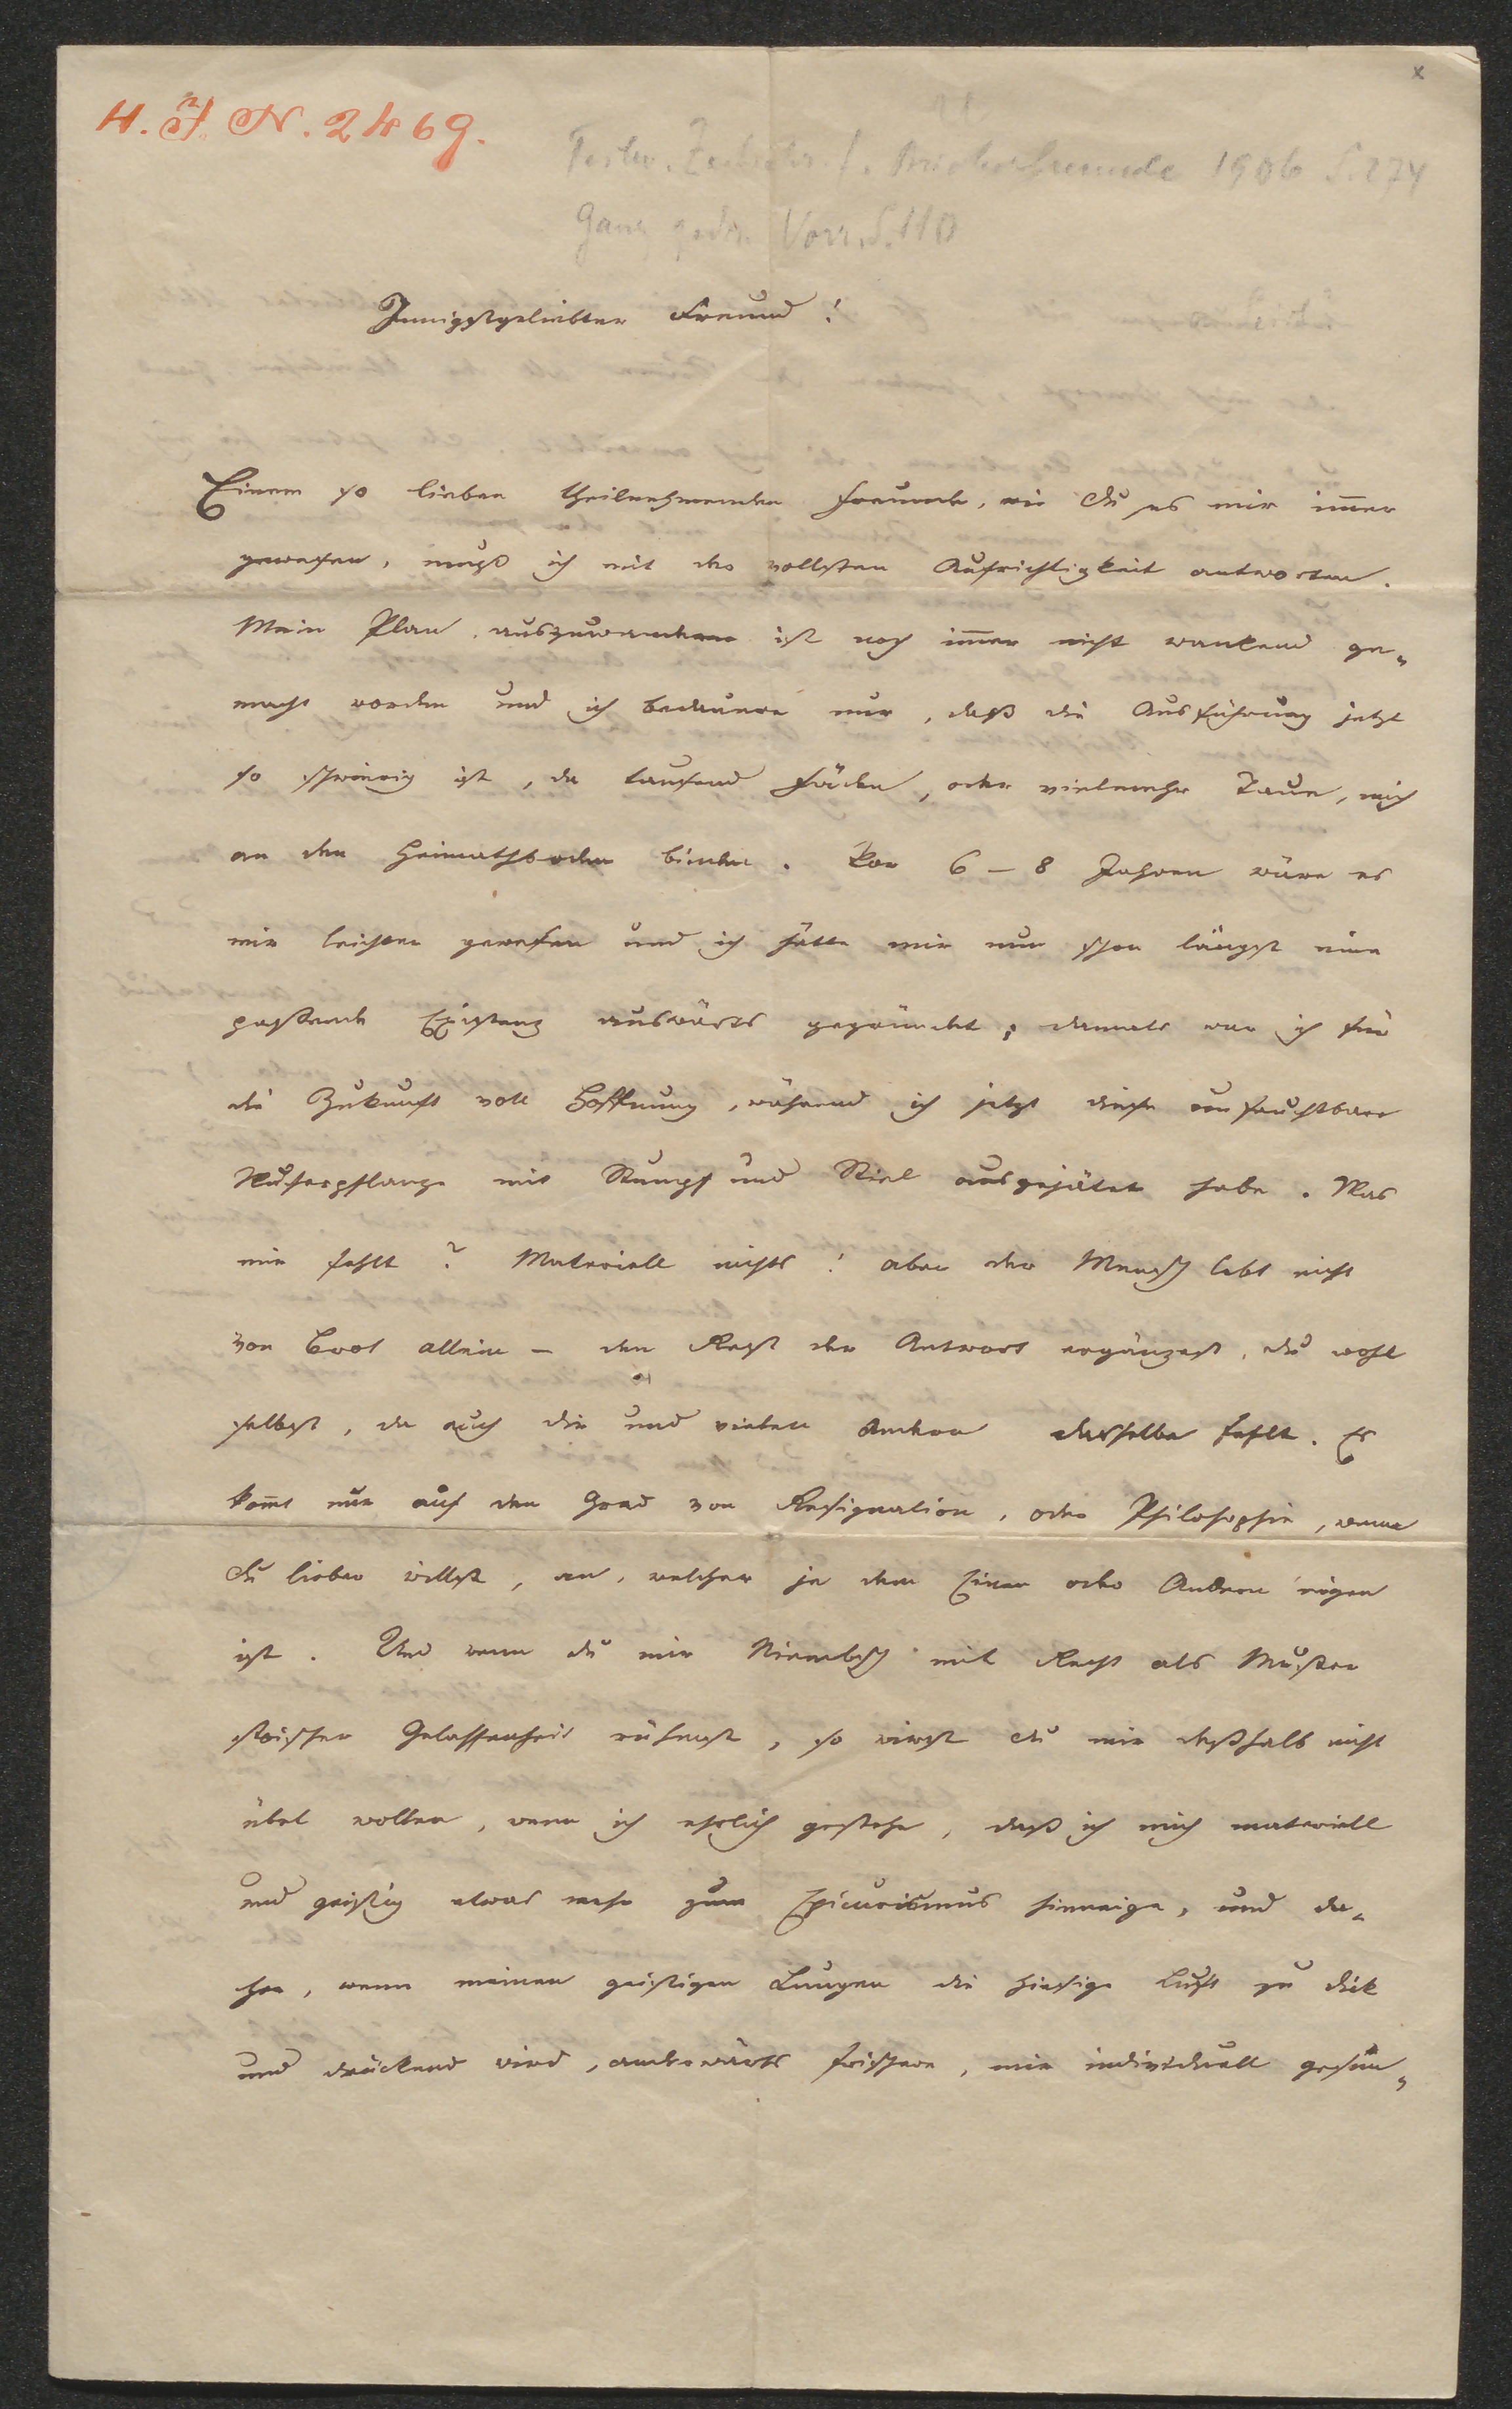 H. I. N. 2469.
x
Zeitschr. f. Bücherfreunde 1906 S. 274
Ganz gedr. Vorr. S. 110
Innigstgeliebter Freund!
Einem so lieben theilnehmenden Freunde, wie du es mir immer
gewesen, muß ich mit der vollsten Aufrichtigkeit antworten.
Mein Plan auszuwandern ist noch immer nicht wankend ge-
macht worden und ich bedauere nur, daß die Ausführung jetzt
so schwierig ist, da tausend Fäden, oder vielmehr Taue, mich
an den Heimathboden binden. Vor 6 – 8 Jahren wäre es
mir leichter gewesen und ich hätte mir nun schon längst eine
passende Existenz auswärts gegründet; damals war ich für
die Zukunft voll Hoffnung, während ich jetzt diese unfruchtbare
Wucherpflanze mit Stumpf und Stiel ausgejätet habe. Was
mir fehlt? Materiell nichts! aber der Mensch lebt nicht
von Brot allein – den Rest der Antwort ergänzest du wohl
selbst, da auch dir und vielen Andern dasselbe fehlt. Es
kommt nur auf den Grad von Resignation, oder Philosophie, wenn
du lieber willst, an, welcher je dem Einen oder Andern eigen
ist. Und wenn du mir Niembsch mit Recht als Muster
stoischer Gelassenheit rühmst, so wirst du mir deßhalb nicht
übel wollen, wenn ich ehrlich gestehe, daß ich mich materiell
und geistig etwas mehr zum Epicurismus hinneige, und da-
her, wenn meinen geistigen Lungen die hiesige Luft zu dick
und drückend wird, anderwärts frischere, mir individuell gesün-